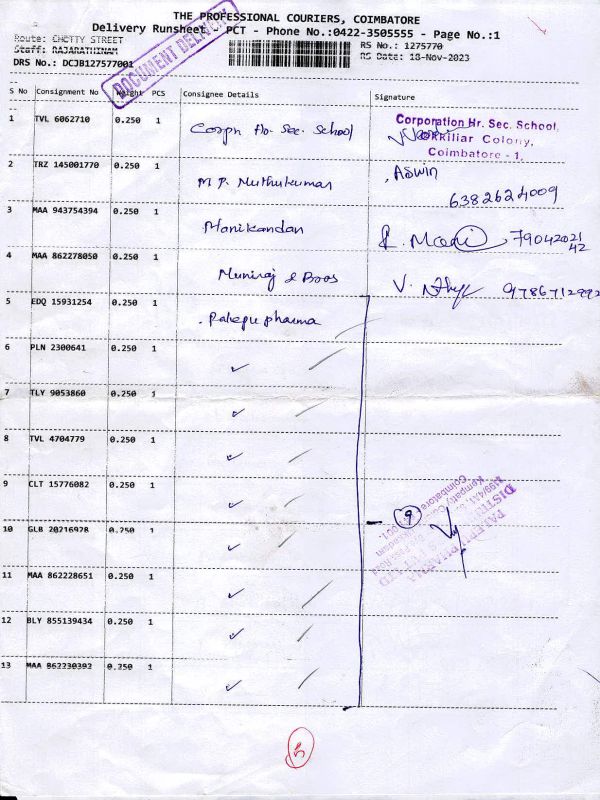 THE PROFESSIONAL COURIERS, COIMBATORE
Delivery Runsheet - PCT - Phone No.:0422-3505555 - Page No.:1
Route: CHETTY STREET
RS No.: 1275770
Staff: RAJARATHINAM
RS Date: 18-Nov-2023
DRS No.: DCJB127577001
DOCUMENT DELIVERY
S No Consignment No Weight PCS Consignee Details Signature
1 TVL 6062710 0.250 1 Corpn Hr. Sec. School
Corporation Hr. Sec. School,
Colony,
Coimbatore - 1,
2 TRZ 145001770 0.250 1 M P. Muthukumar ASWIN
6382624009
3 MAA 943754394 0.250 1 Manikandan R. Mani 7904202142
4 MAA 862278050 0.250 1 Muniraj & Bros V.
5 EDQ 15931254 0.250 1 Palepu pharma
6 PLN 2300641 0.250 1
7 TLY 9053860 0.250 1
8 TVL 4704779 0.250 1
9 CLT 15776082 0.250 1
9
PALEPU PHARMA
Coimbatore
10 GLB 20216928 0.250 1
11 MAA 862228651 0.250 1
12 BLY 855139434 0.250 1
13 MAA 862230392 0.250 1
5